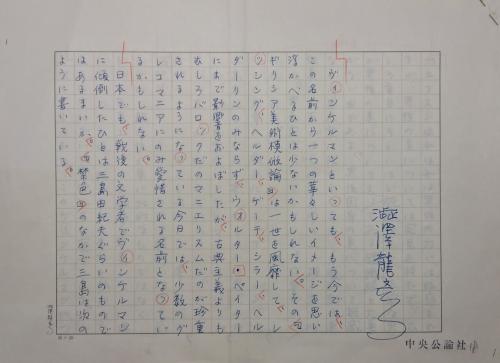 澁澤龍彦
ヴィンケルマンといっても、もう今では、
この名前から一つの華々しいイメージを思い
浮かべるひとは少ないかもしれない。その『
ギリシア美術模倣論』は一世を風靡して、レ
ッシング、ヘルダー、ゲーテ、シラー、ヘル
ダーリンのみならず、ウォルター・ペイター
にまで影響をおよぼしたが、古典主義よりも
むしろバロックだのマニエリスムだのが珍重
されるようになっている今日では、少数のグ
レコマニアにのみ愛惜される名前となってい
るかもしれない。
日本でも、戦後の文学者でヴィンケルマン
に傾倒したひとは三島由紀夫ぐらいのもので
はあるまいか。『禁色』のなかで三島は次の
ように書いている。
中央公論社